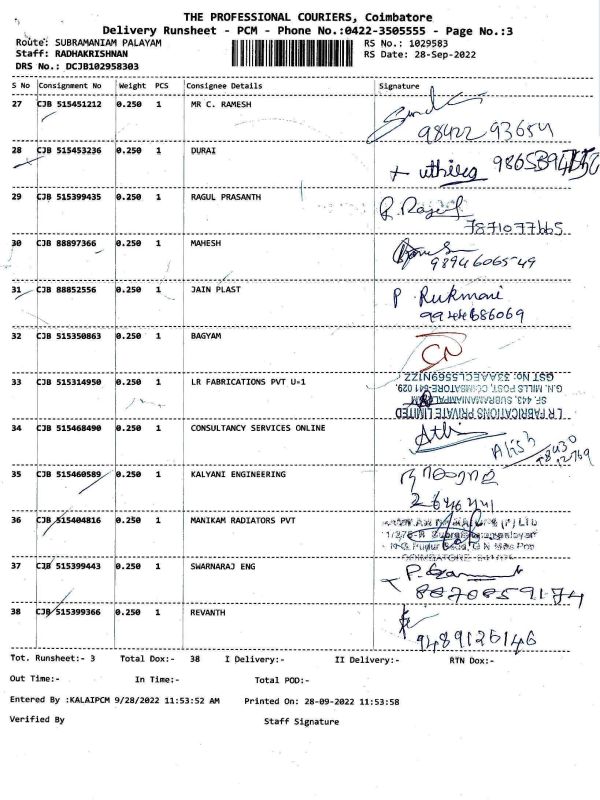 THE PROFESSIONAL COURIERS, Coimbatore
Delivery Runsheet - PCM - Phone No.:0422-3505555 - Page No.:3
Route: SUBRAMANIAM PALAYAM RS No.: 1029583
Staff: RADHAKRISHNAN RS Date: 28-Sep-2022
DRS No.: DCJB102958303
S No Consignment No Weight PCS Consignee Details Signature
27 CJB 515451212 0.250 1 MR C. RAMESH
98422 93654
28 CJB 515453236 0.250 1 DURAI
29 CJB 515399435 0.250 1 RAGUL PRASANTH
7871077665
30 CJB 88897366 0.250 1 MAHESH
9894606549
31 CJB 88852556 0.250 1 JAIN PLAST P Rukmani
9944686069
32 CJB 515350863 0.250 1 BAGYAM CN
33 CJB 515314950 0.250 1 LR FABRICATIONS PVT U-1
LR FABRICATIONS PRIVATE LIMITED
SF. 443, SUBRAMANIAMPALAYAM
G.N. MILLS POST, COIMBATORE-641 029.
34 CJB 515468490 0.250 1 CONSULTANCY SERVICES ONLINE
35 CJB 515460589 0.250 1 KALYANI ENGINEERING
36 CJB 515404816 0.250 1 MANIKAM RADIATORS PVT
37 CJB 515399443 0.250 1 SWARNARAJ ENG
8870859174
38 CJB 515399366 0.250 1 REVANTH
9489126146
Tot. Runsheet:- 3 Total Dox:- 38 I Delivery:- II Delivery:- RTN Dox:-
Out Time:- In Time:- Total POD:-
Entered By :KALAIPCM 9/28/2022 11:53:52 AM Printed On: 28-09-2022 11:53:58
Verified By Staff Signature